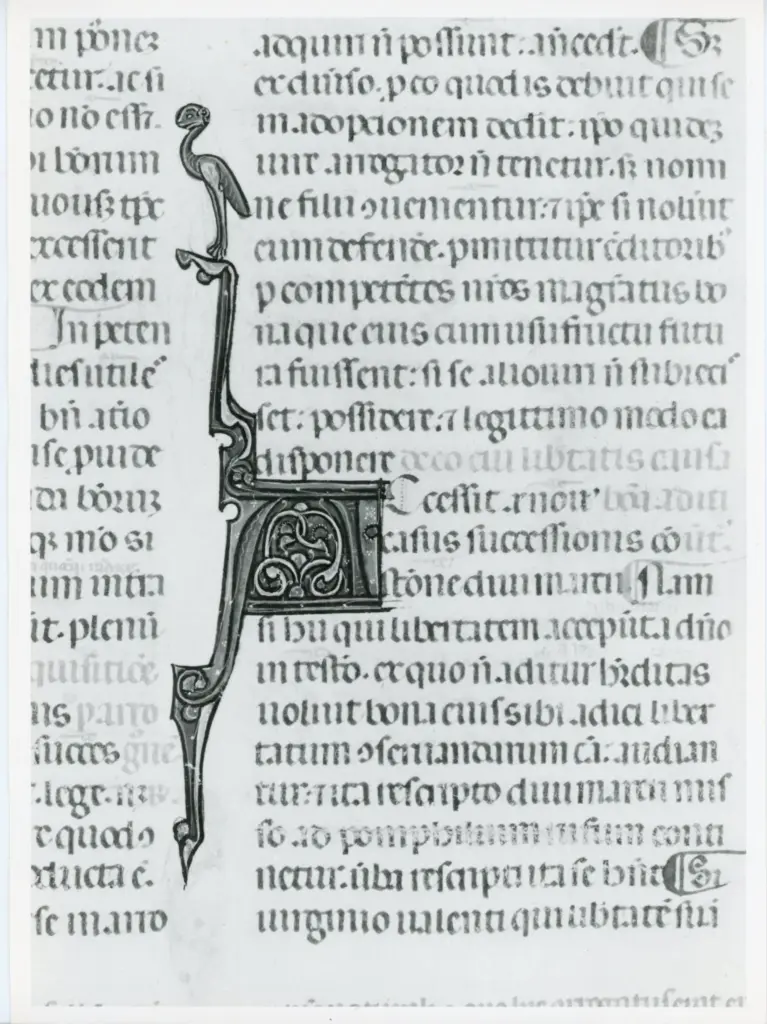 m pōner
cetur. ac si
io nō eſſꝫ.
bi bonum
uouſꝫ tp̄e
exceſſent
ex eodem
In peten
dies utile
bn̄ .atio
iſe puide
da bōnꝝ
qꝫ mō si
um intra
it. plenū
quiſitiōe
us parro
ſucces
.lege.
t quodo
ducta ē.
ſe marito
.adquiri n̄ poſſunt. an̄cedit. ¶ Sꝫ
ex diuſo. p eo quod is debuit qui ſe
in adoptionem dedit. ip̄o quidez
iure .arrogator n̄ tenetur. sꝫ nomi
ne filii ꝯuenientur. ⁊ ip̄e si noluit
eum defendẽ. pmittitur c̄ditoribꝰ
p competētes nr̄os magr̄atus bo
na que eius cum uſufructu futu
ra fuiſſent: ſi ſe .alieno iuri n̄ ſubieci
ſet: poſſidere. ⁊ legittimo modo ea
disponere de eo cui libtatis cauſa
Acceſſit .a nouꝰ bōn aditi
casus succeſſionis cō
ſtōne diui marci ¶ Nam
ſi hii qui libertatem acceput .a dn̄o
in teſto. ex quo n̄ .aditur hr̄ditas
uolunt bona eius sibi .adici liber
tatum ꝯſeruandarum cā. audian
tur. ⁊ ita reſcripto diui marci miſ
ſo .ad pomphilium rufium conti
netur. ūba reſcripti ita ſe hn̄t ¶ Si
uirginio ualenti qui libtatē ſui